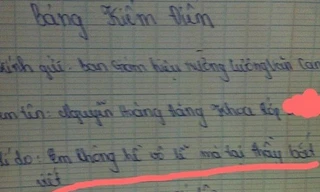 Bảng Kiểm Điểm
kính gửi: Ban Giám hiệu trường Lương Văn Can
tên: Nguyễn Hoàng
lí do: Em không hề vô lễ mà tại thầy bắt
viết